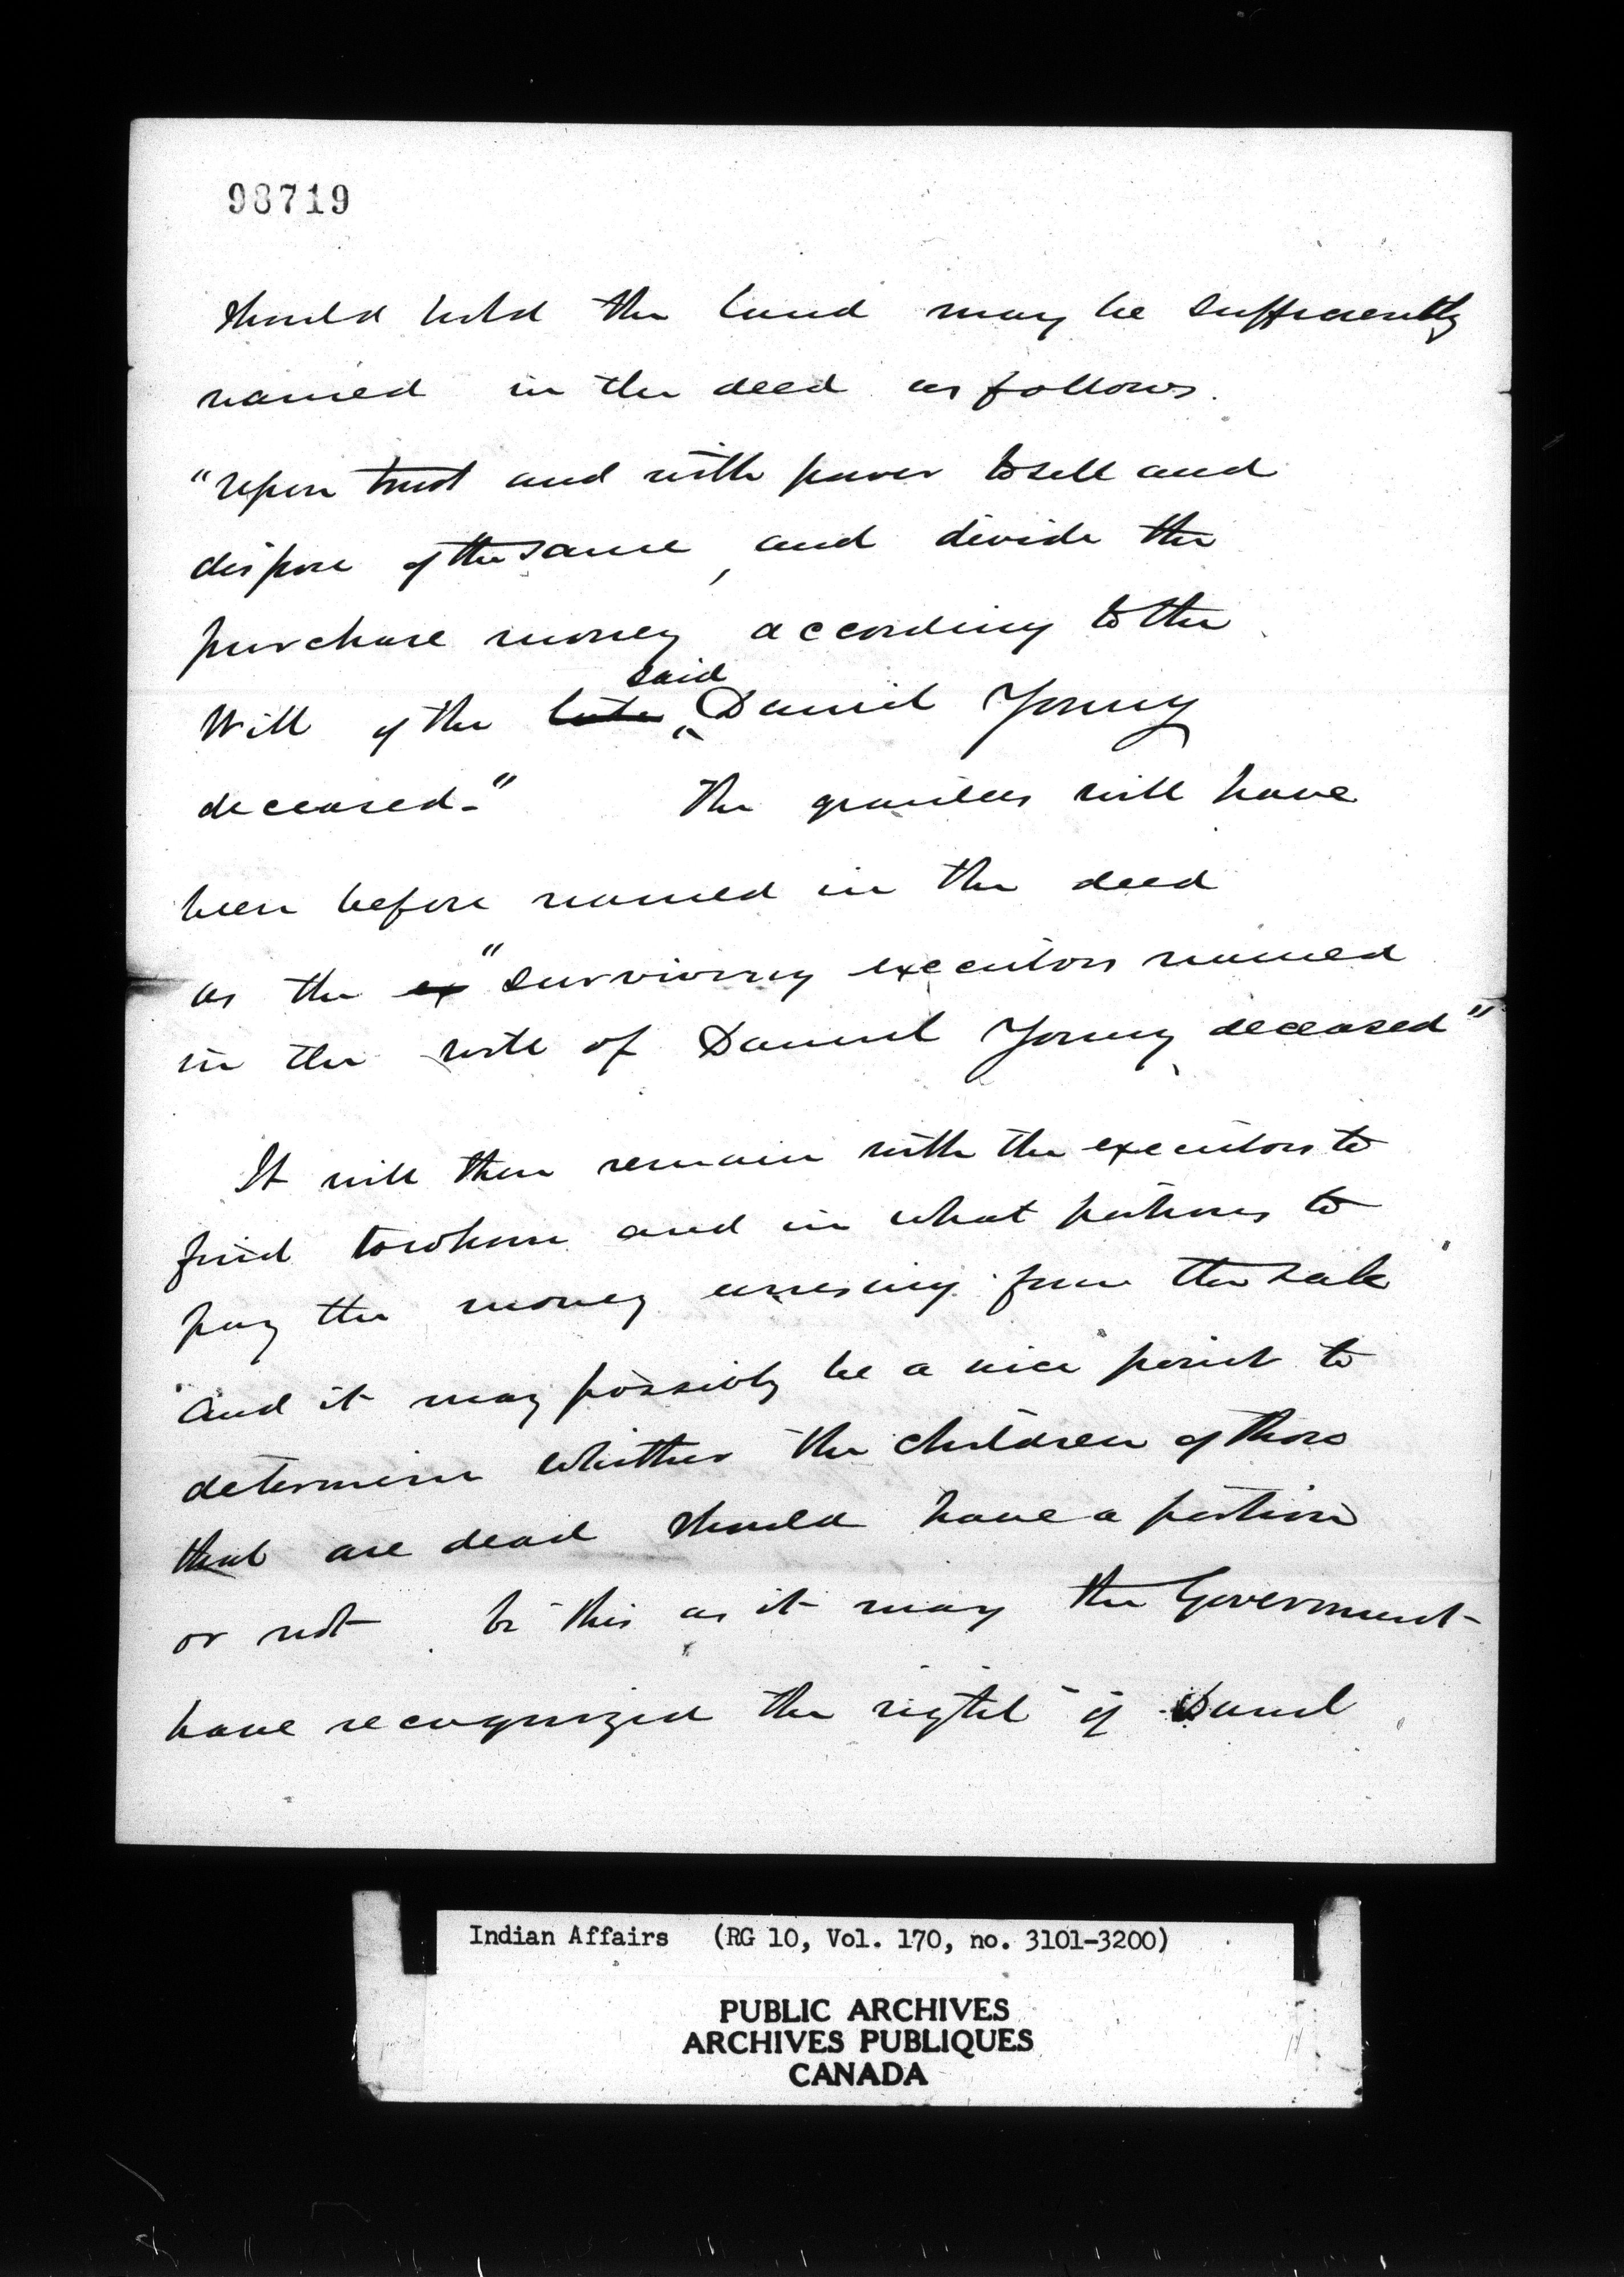 98719
should hold the land may be sufficiently
named in the deed as follows.
"upon trust and with power to sell and
dispose of the same, and divide the
purchase money according to the
said
Will of the late Daniel Young
deceased." The grantees will have
been before named in the deed
as the ex "surviving executors named
in the will of Daniel Young deceased"
It will then remain with the executors to
find to whom and in what portions to
pay the money arresing from the sale
and it may possibly be a nice point to
determine whether the children of those
that are dead should have a portion
or not. be this as it may the Government
have recognized the right of Daniel
Indian Affairs (RG 10, Vol. 170, no. 3101-3200)
PUBLIC ARCHIVES
ARCHIVES PUBLIQUES
CANADA